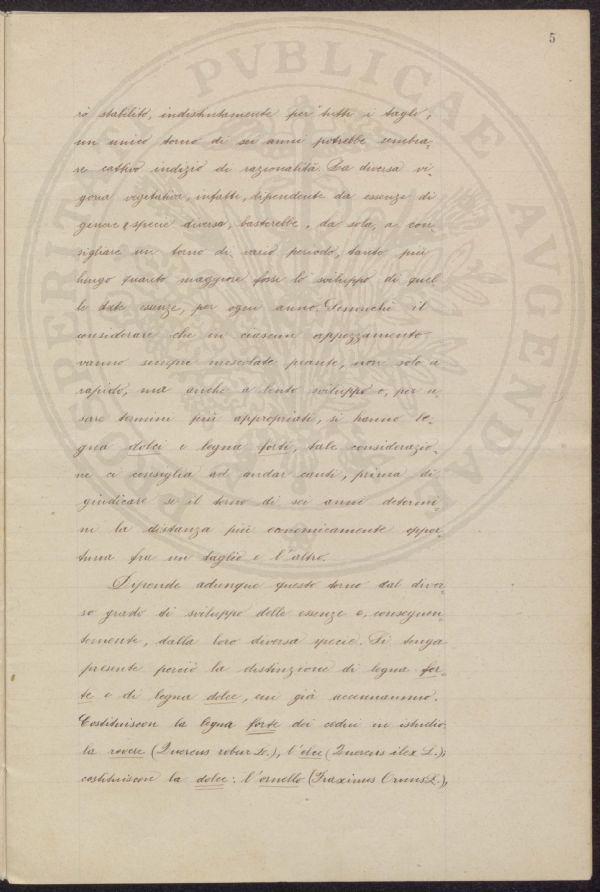 5
rò stabilito, indistintamente per tutti i tagli,
un unico torno di sei anni potrebbe sembra-
re cattivo indizio di razionalità. La diversa vi-
goria vegetativa, infatti, dipendente da essenze di
genere e specie diversa, basterebbe, da sola, a con-
sigliare un torno di vario periodo, tanto più
lungo quanto maggiore fosse lo sviluppo di quel
le date essenze, per ogni anno. Sennonchè il
considerare che in ciascun appezzamento
vanno sempre mescolate piante, non solo a
rapido, ma anche a lento sviluppo o, per u-
sare termini più appropriati, si hanno le-
gna dolci e legna forti, tale considerazio-
ne ci consiglia ad andar cauti, prima di
giudicare se il torno di sei anni determi-
ni la distanza più economicamente oppor-
tuna fra un taglio e l'altro.
Dipende adunque questo torno dal diver-
so grado di sviluppo delle essenze e, conseguen-
temente, dalla loro diversa specie. Si tenga
presente perciò la distinzione di legna for-
te e di legna dolce, cui già accennammo.
Costituiscon la legna forte dei cedui in istudio:
la rovere (Quercus robur L.), l'elce (Quercus ilex L.);
costituiscon la dolce: l'ornello (Fraxinus Ornus L.),
PVBLICAE AVGENDAE PROSPERITATI